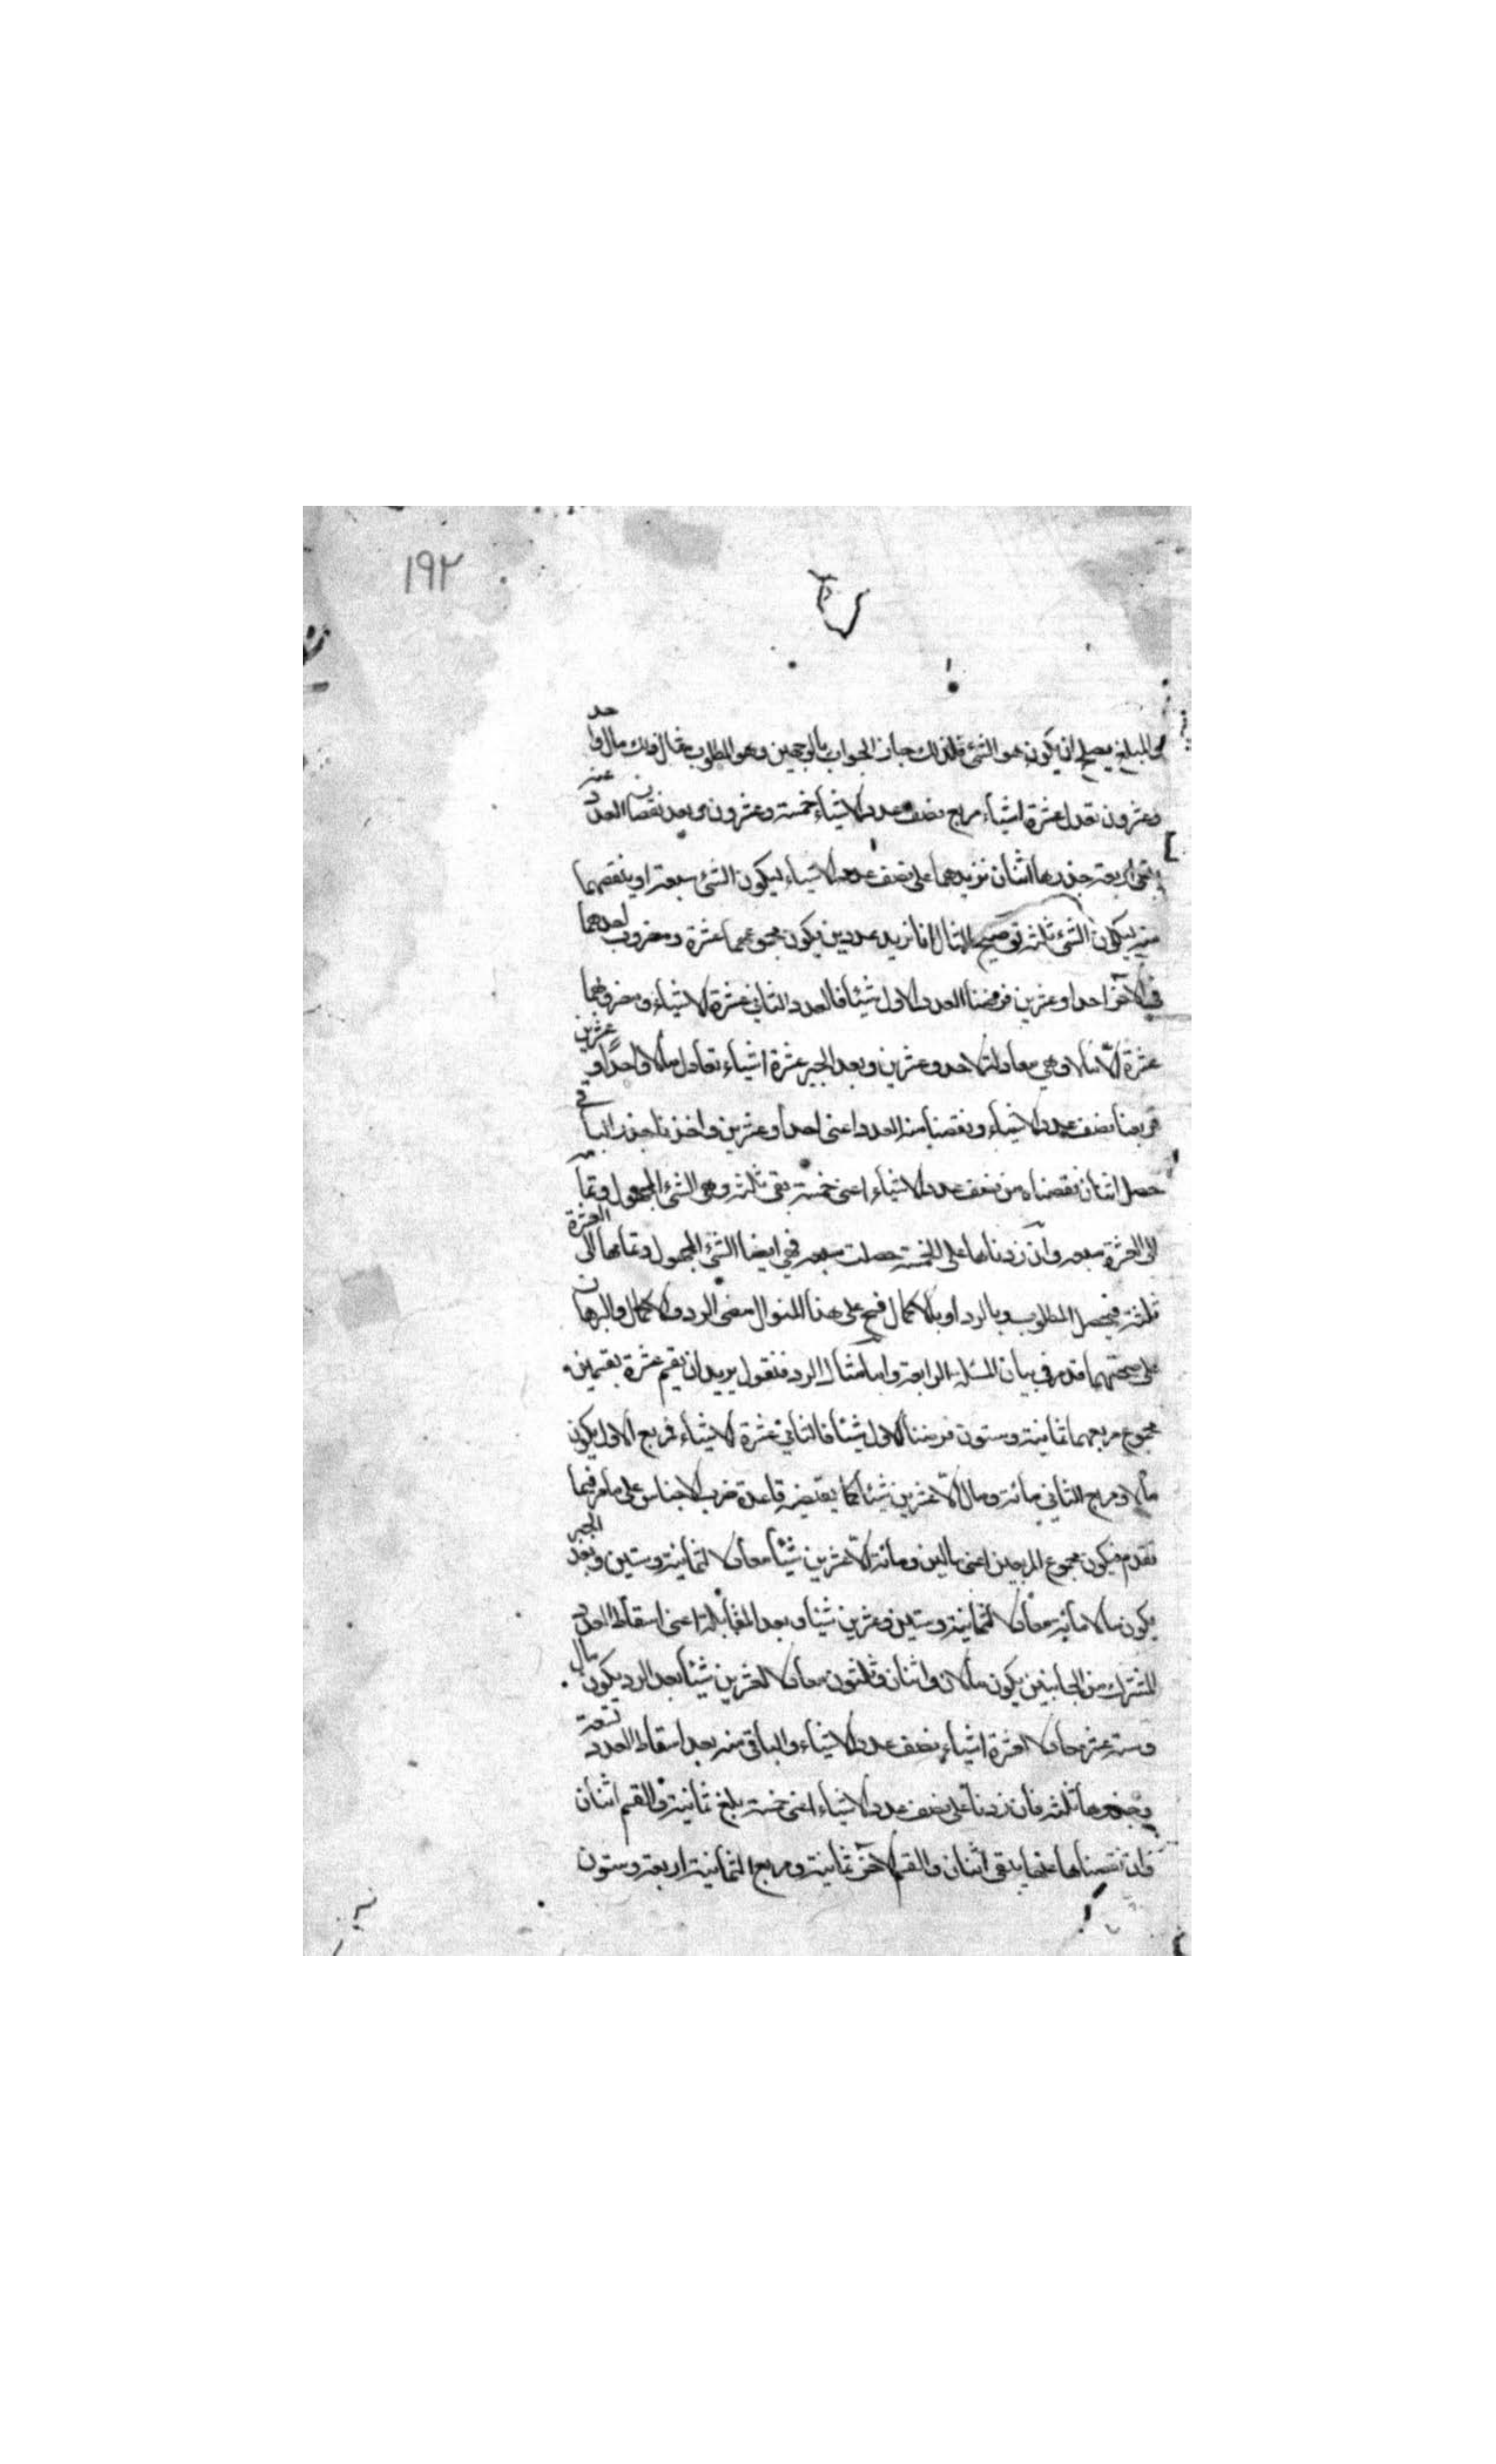 ١٩٢
والمبلغ يصلح ان يكون هو الشئ فلذلك جاز الجواب بالوجهين وهو المطلوب مثال ذلك مال واحد
وعشرون تعدل عشرة اشياء مربع نصف عدد الاشياء خمسة وعشرون وبعد نقصان العدد عنه
يبقى اربعة جذرها اثنان نزيدهما على نصف عدد الاشياء ليكون الشئ سبعة او ينقصهما
منه ليكون الشئ ثلثة توضيح المثال انا نريد عددين يكون مجموعهما عشرة ومضروب احدهما
في الآخر احدا وعشرين فرضنا العدد الاول شيئا فالعدد الثاني عشرة الا شياء ومضروبهما
عشرة الا مالا وهي معادلة لاحد وعشرين وبعد الجبر عشرة اشياء تعادل مالا واحدا وعشرين
فربعنا نصف عدد الاشياء ونقصنا منه العدد اعنى احدا وعشرين واخذنا جذر الباقي
حصل اثنان نقصناه من نصف عدد الاشياء اعنى خمسة بقى ثلثة وهو الشئ المجهول وتمامه
الى العشرة سبعة وان زدناها على الخمسة حصلت سبعة فهي ايضا الشئ المجهول وتمامها الى العشرة
ثلثة فيحصل المطلوب وبالرد او بالاكمال فسح على هذا المنوال مضى الرد والاكمال والبرهان
على صحتهما قد مر في بيان المسئلة الرابعة واما مثال الرد فنقول نريد ان نقسم عشرة بقسمين
مجموع مربعهما ثمانية وستون فرضنا الاول شيئا فالثاني عشرة الا شياء فمربع الاول يكون
مالا ومربع الثاني مائة ومال الا عشرين شيئا كما يقتضيه قاعدة ضرب الاجناس على ما مر فيما
تقدم فيكون مجموع المربعين اعنى مالين ومائة الا عشرين شيئا معادلا لثمانية وستين وبعد الجبر
يكون مالا مائة معادلا لثمانية وستين وعشرين شيئا وبعد المقابلة اعنى اسقاط العدد
المشترك من الجانبين يكون مالان واثنان وثلثون معادلا لعشرين شيئا بعد الرد يكون مال
وستة عشر معادلا لعشرة اشياء نصف عدد الاشياء والباقى منه بعد اسقاط العدد تسعة
وجذرها ثلثة فان زدنا على نصف عدد الاشياء اعنى خمسة بلغ ثمانية والقسم اثنان
وان نقصناها عنها يبقى اثنان والقسم الآخر ثمانية ومربع الثمانية اربعة وستون